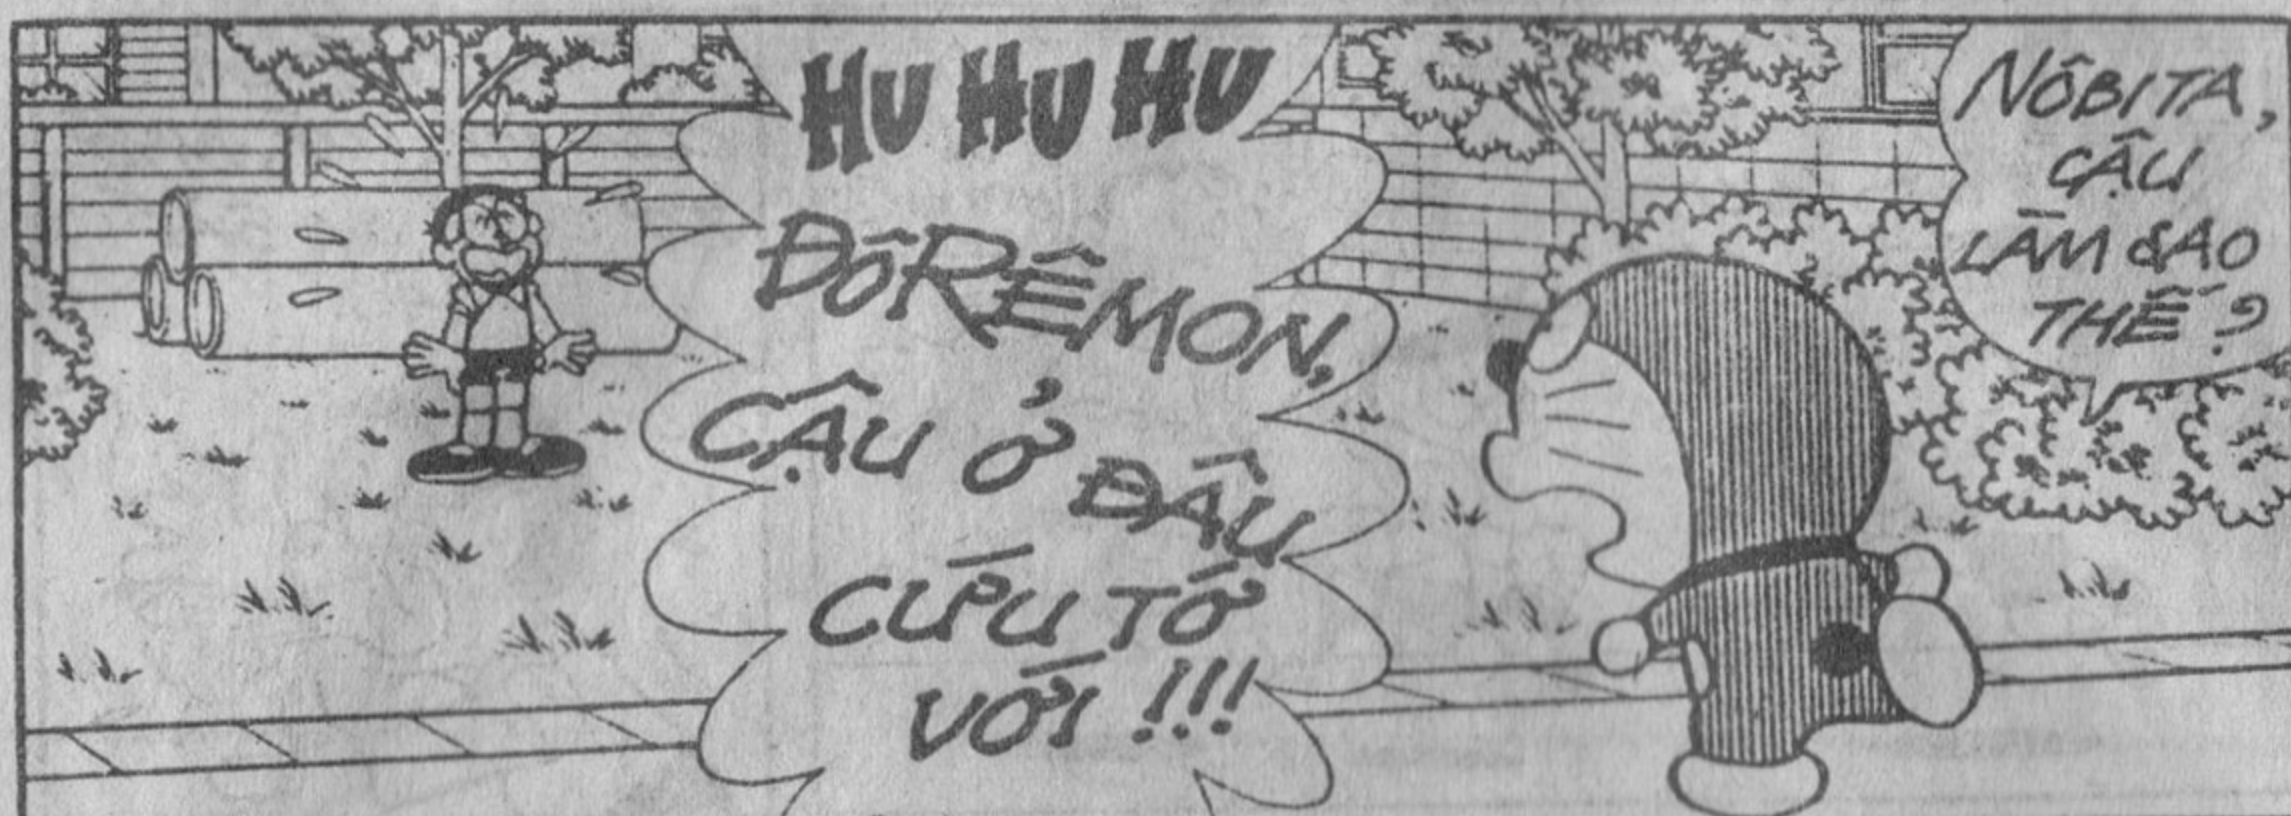 HU HU HU
ĐÔRÊMON,
CẬU Ở ĐÂU
CỨU TỚ
VỚI!!!
NÔBITA,
CẬU
LÀM SAO
THẾ?